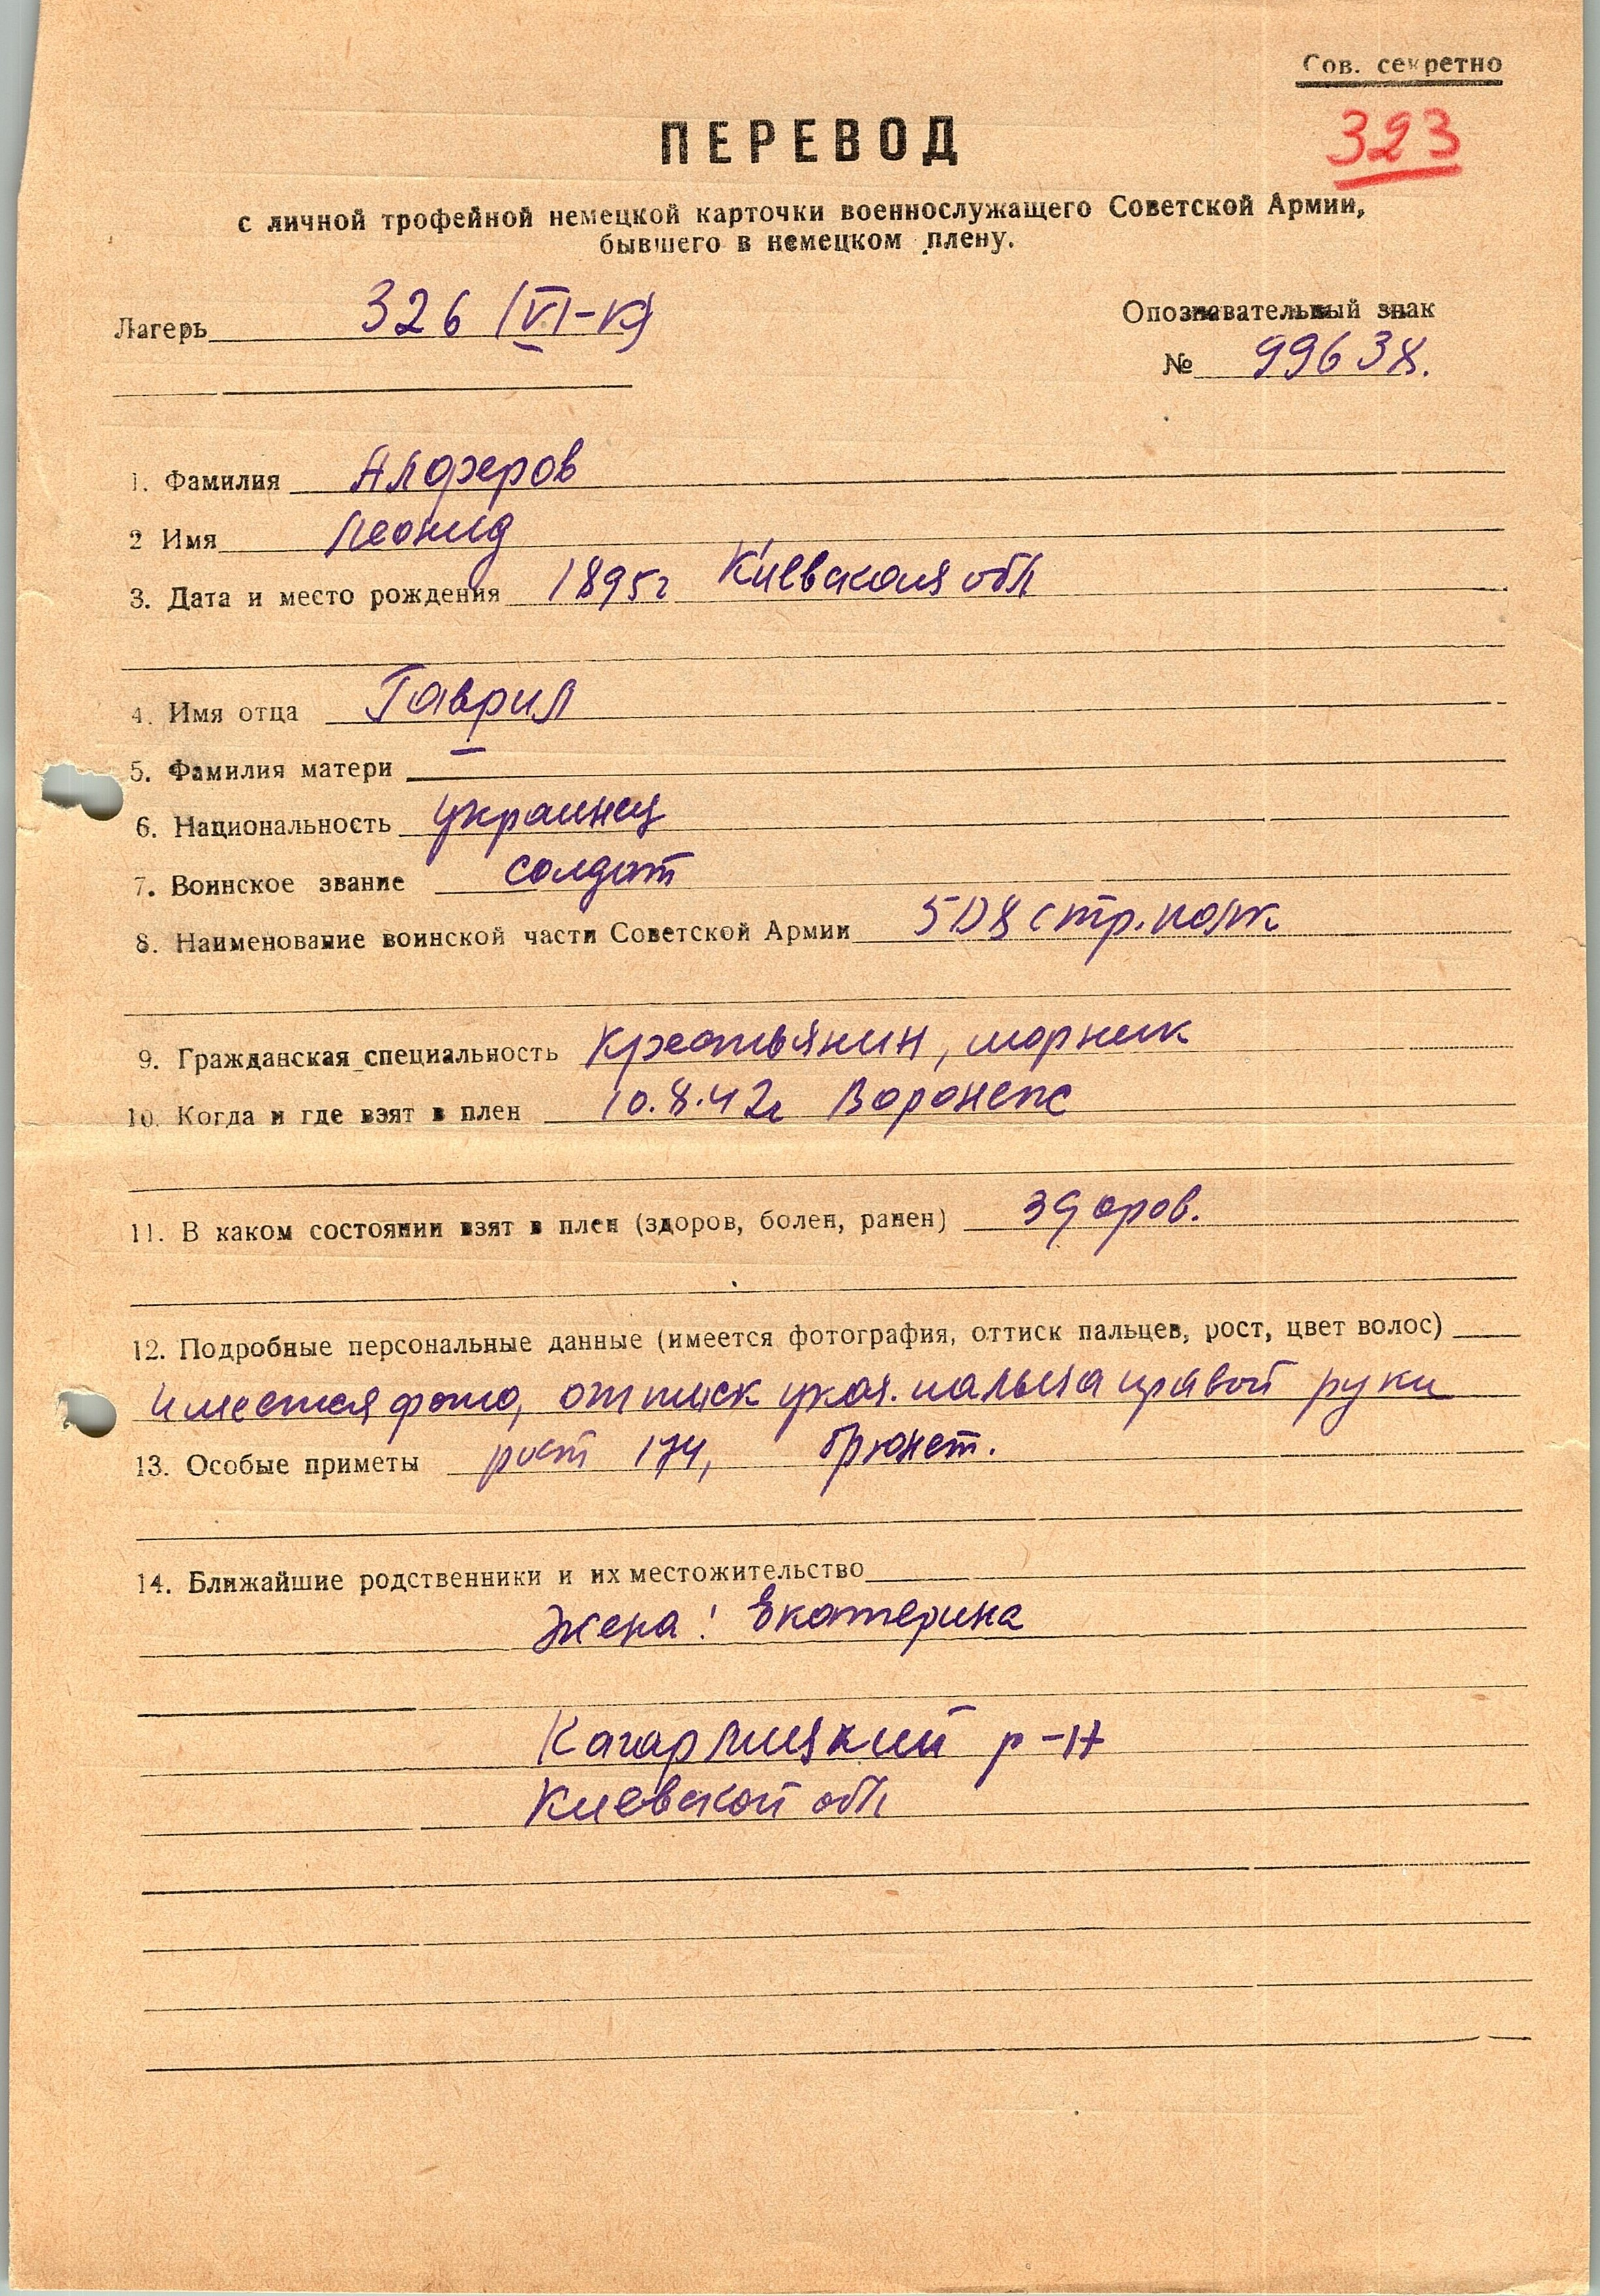 Сов. секретно
323
ПЕРЕВОД
с личной трофейной немецкой карточки военнослужащего Советской Армии,
бывшего в немецком плену.
Лагерь 326 (VI-К)
Опознавательный знак
№ 99638.
1. Фамилия Алферов
2 Имя Леонид
3. Дата и место рождения 1895г Киевская обл
4. Имя отца Гаврил
5. Фамилия матери —
6. Национальность украинец
7. Воинское звание солдат
8. Наименование воинской части Советской Армии 508 стр. полк
9. Гражданская специальность Крестьянин,
10. Когда и где взят в плен 10.8.42г Воронеж
11. В каком состоянии взят в плен (здоров, болен, ранен) здоров.
12. Подробные персональные данные (имеется фотография, оттиск пальцев, рост, цвет волос)
имеется фото, оттиск указ. пальца правой руки
13. Особые приметы рост 174, брюнет.
14. Ближайшие родственники и их местожительство
Жена: Екатерина
Кагарлицкий р-н
Киевской обл